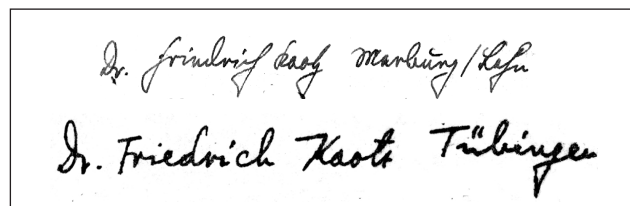 Dr. Friedrich Marburg/Lahn
Dr. Friedrich Tübingen